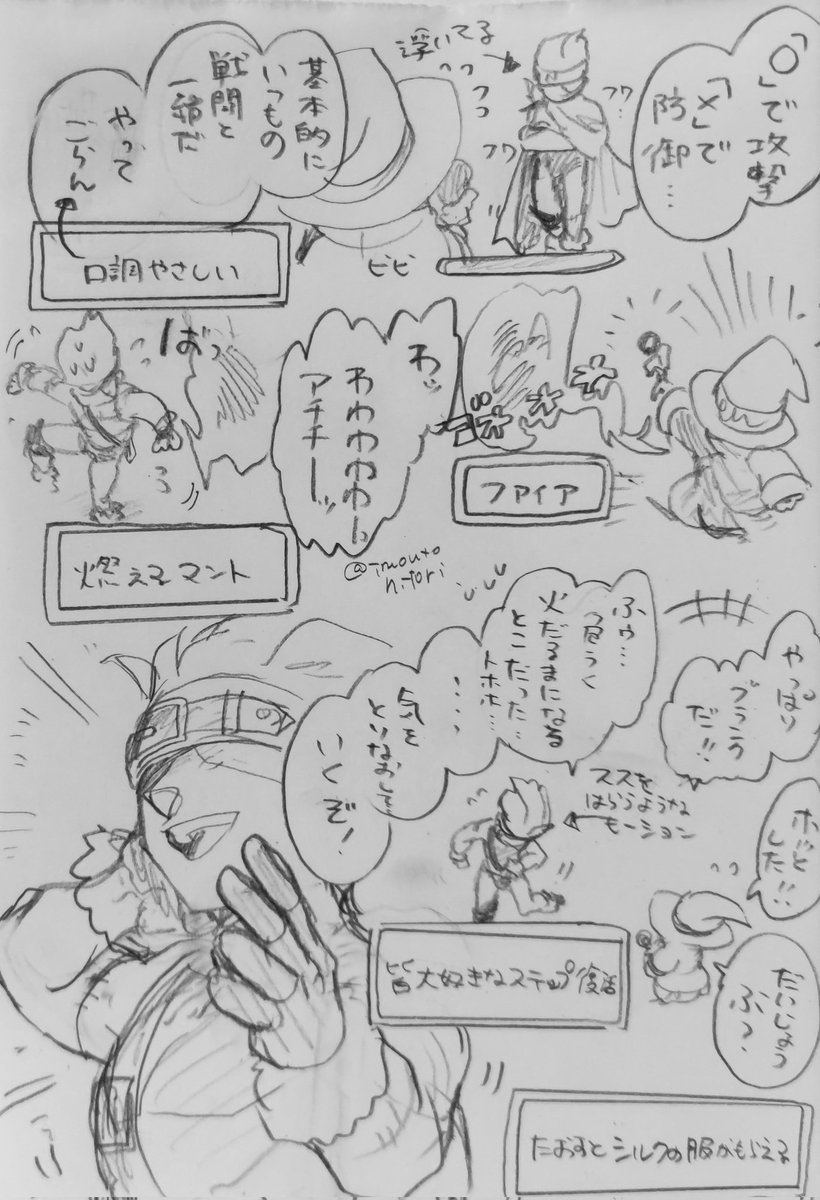 「○」で攻撃
「×」で
防御…
浮いてる
フワ…
フワ
基本的に
いつもの
戦闘と
一緒だ
やって
ごらん
口調やさしい
ビビ
ファイア
わッ
わわわわわっ
アチチーッ
ばっ
燃えるマント
@imouto
hitori
やっぱり
ブランク
だ!!
ホッと
した!!
だいじょう
ぶ?
ふぅ…
危うく
火だるまになる
とこだった…
トホホ…
・・・・
気を
とりなおして
いくぞ!
ススを
はらうような
モーション
皆大好きなステップ復活
たおすとシルクの服がもらえる